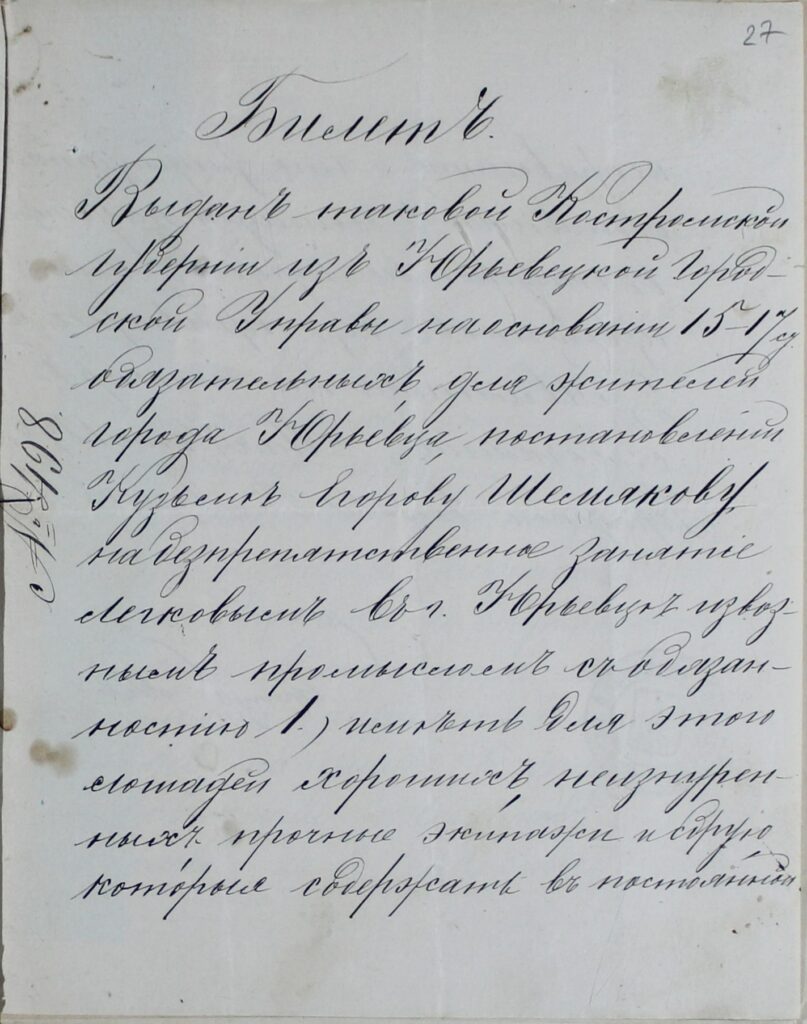 27
Билетъ.
Выданъ таковой Костромской
губерніи изъ Юрьевецкой Город-
ской Управы на основаніи 15-17 ст.
обязательныхъ для жителей
города Юрьевца, постановленій
Кузьмѣ Егорову Шемякову
на безпрепятственное занятіе
легковымъ въ г. Юрьевцѣ извоз-
нымъ промысломъ съ обязан-
ностію 1.) имѣть для этого
лошадей хорошихъ, неизнурен-
ныхъ прочные экипажи и сбрую
которыя содержать въ постоянной
№ 498